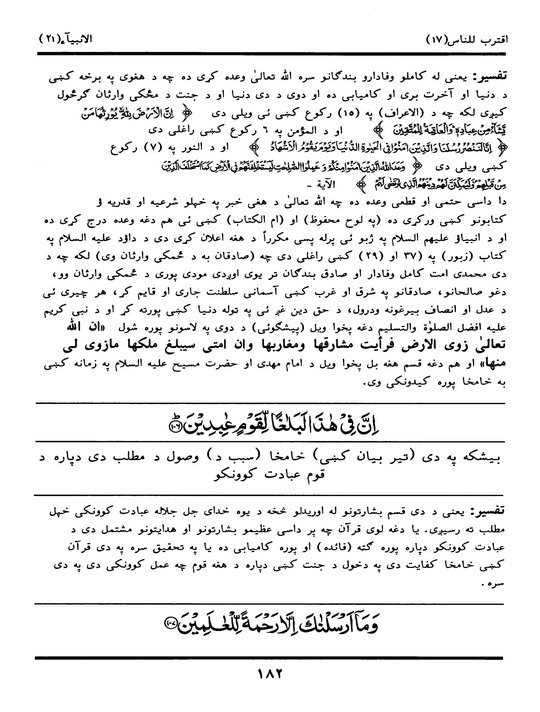 اقترب للناس(١٧) الانبيآء(٢١)
تفسير: يعنی له کاملو وفادارو بندګانو سره الله تعالیٰ وعده کړی ده چه د هغوی په برخه کښی
د دنيا او آخرت بری او کاميابی ده او دوی د دی دنيا او د جنت د مځکی وارثان ګرځول
کيږی لکه چه د (الاعراف) په (١٥) رکوع کښی ئی ويلی دی ﴿ اِنَّ الْاَرْضَ لِلّٰهِ يُوْرِثُهَا مَنْ
يَّشَآءُ مِنْ عِبَادِهٖ وَالْعَاقِبَةُ لِلْمُتَّقِيْنَ ﴾ او د المؤمن په ٦ رکوع کښی راغلی دی
﴿ اِنَّا لَنَنْصُرُ رُسُلَنَا وَالَّذِيْنَ اٰمَنُوْا فِی الْحَيٰوةِ الدُّنْيَا وَيَوْمَ يَقُوْمُ الْاَشْهَادُ ﴾ او د النور په (٧) رکوع
کښی ويلی دی ﴿ وَعَدَ اللّٰهُ الَّذِيْنَ اٰمَنُوْا مِنْكُمْ وَعَمِلُوا الصّٰلِحٰتِ لَيَسْتَخْلِفَنَّهُمْ فِی الْاَرْضِ كَمَا اسْتَخْلَفَ الَّذِيْنَ
مِنْ قَبْلِهِمْ وَلَيُمَكِّنَنَّ لَهُمْ دِيْنَهُمُ الَّذِی ارْتَضٰی لَهُمْ ﴾ الآية -
دا داسی حتمی او قطعی وعده ده چه الله تعالیٰ د هغی خبر په خپلو شرعيه او قدريه ؤ
کتابونو کښی ورکړی ده (په لوح محفوظ) او (ام الکتاب) کښی ئی هم دغه وعده درج کړی ده
او د انبياؤ عليهم السلام په ژبو ئی پرله پسی مکرراً د هغه اعلان کړی دی د داؤد عليه السلام په
کتاب (زبور) په (٣٧) او (٢٩) کښی راغلی دی چه (صادقان به د مځکی وارثان وی) لکه چه د
دی محمدی امت کامل وفادار او صادق بندګان تر يوی اوږدی مودی پوری د مځکی وارثان وو،
دغو صالحانو، صادقانو په شرق او غرب کښی آسمانی سلطنت جاری او قايم کړ، هر چيری ئی
د عدل او انصاف بيرغونه ودرول، د حق دين غږ ئی په ټوله دنيا کښی پورته کړ او د نبی کريم
عليه افضل الصلوٰة والتسليم دغه پخوا ويل (پيشګوئی) د دوی په لاسونو پوره شول «ان الله
تعالیٰ زوی الارض فرأيت مشارقها ومغاربها وان امتی سيبلغ ملکها مازوی لی
منها» او هم دغه قسم هغه بل پخوا ويل د امام مهدی او حضرت مسيح عليه السلام په زمانه کښی به
به خامخا پوره کيدونکی وی.
اِنَّ فِیْ هٰذَا لَبَلٰغًا لِّقَوْمٍ عٰبِدِيْنَ ۝١٠٦
بيشکه په دی (تير بيان کښی) خامخا (سبب د) وصول د مطلب دی دپاره د
قوم عبادت کوونکو
تفسير: يعنی د دی قسم بشارتونو له اوريدلو څخه د يوه خدای جل جلاله عبادت کوونکی خپل
مطلب ته رسيږی. يا دغه لوی قرآن چه پر داسی عظيمو بشارتونو او هدايتونو مشتمل دی د
عبادت کوونکو دپاره پوره ګټه (فائده) او پوره کاميابی ده يا په تحقيق سره په دی قرآن
کښی خامخا کفايت دی په دخول د جنت کښی دپاره د هغه قوم چه عمل کوونکی دی په دی
سره .
وَمَآ اَرْسَلْنٰكَ اِلَّا رَحْمَةً لِّلْعٰلَمِيْنَ ۝١٠٧
١٨٢